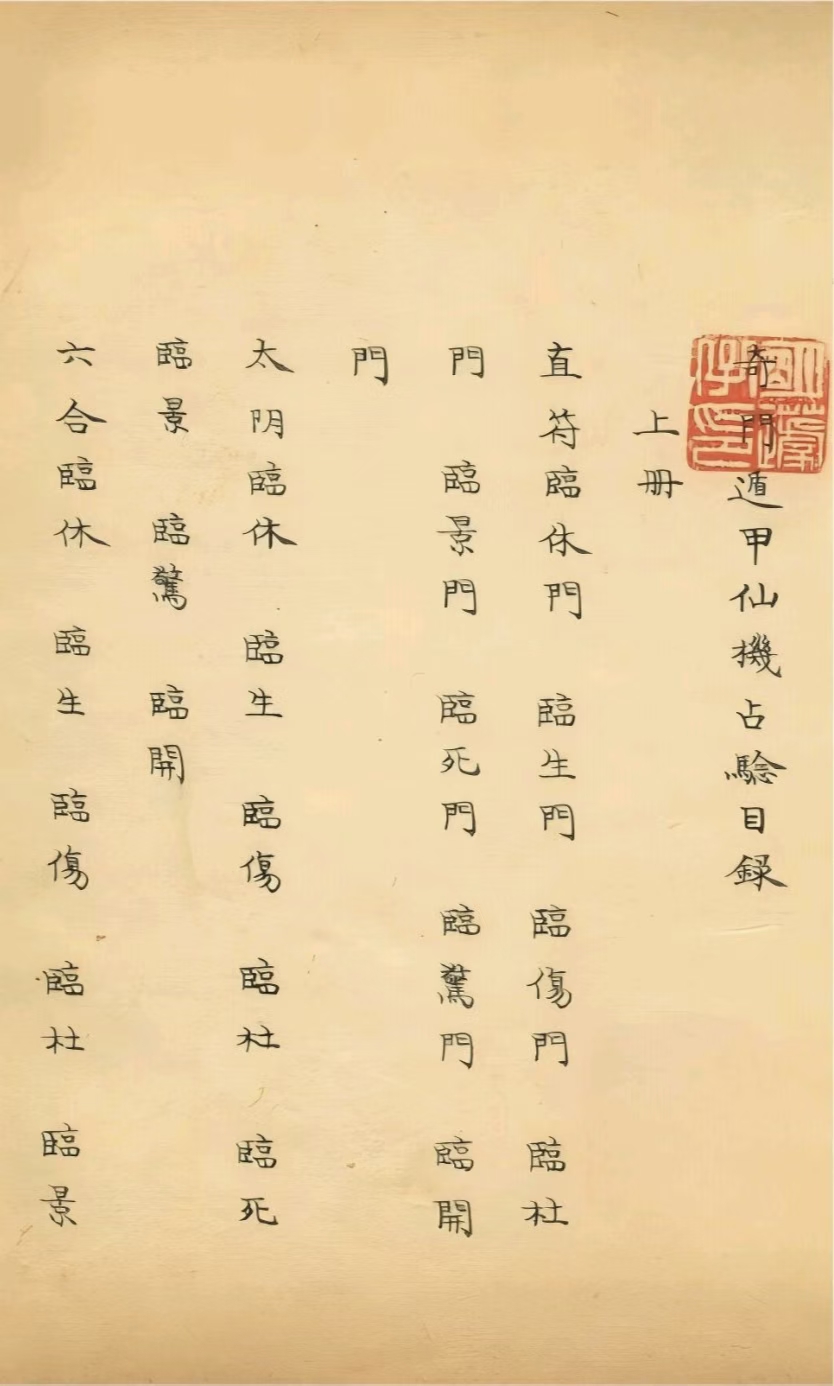 奇門遁甲仙機占驗目録
上册
直符臨休門 臨生門 臨傷門 臨杜
門 臨景門 臨死門 臨驚門 臨開
門
太阴臨休 臨生 臨傷 臨杜 臨死
臨景 臨驚 臨開
六合臨休 臨生 臨傷 臨杜 臨景